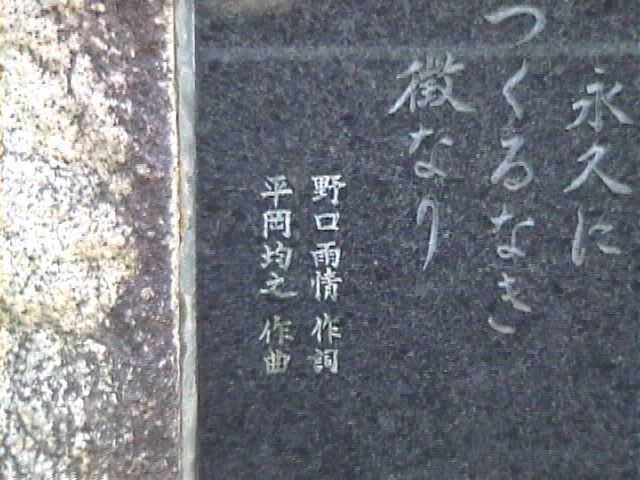 永久に
つくるなき
徴なり
野口雨情 作詞
平岡均之 作曲